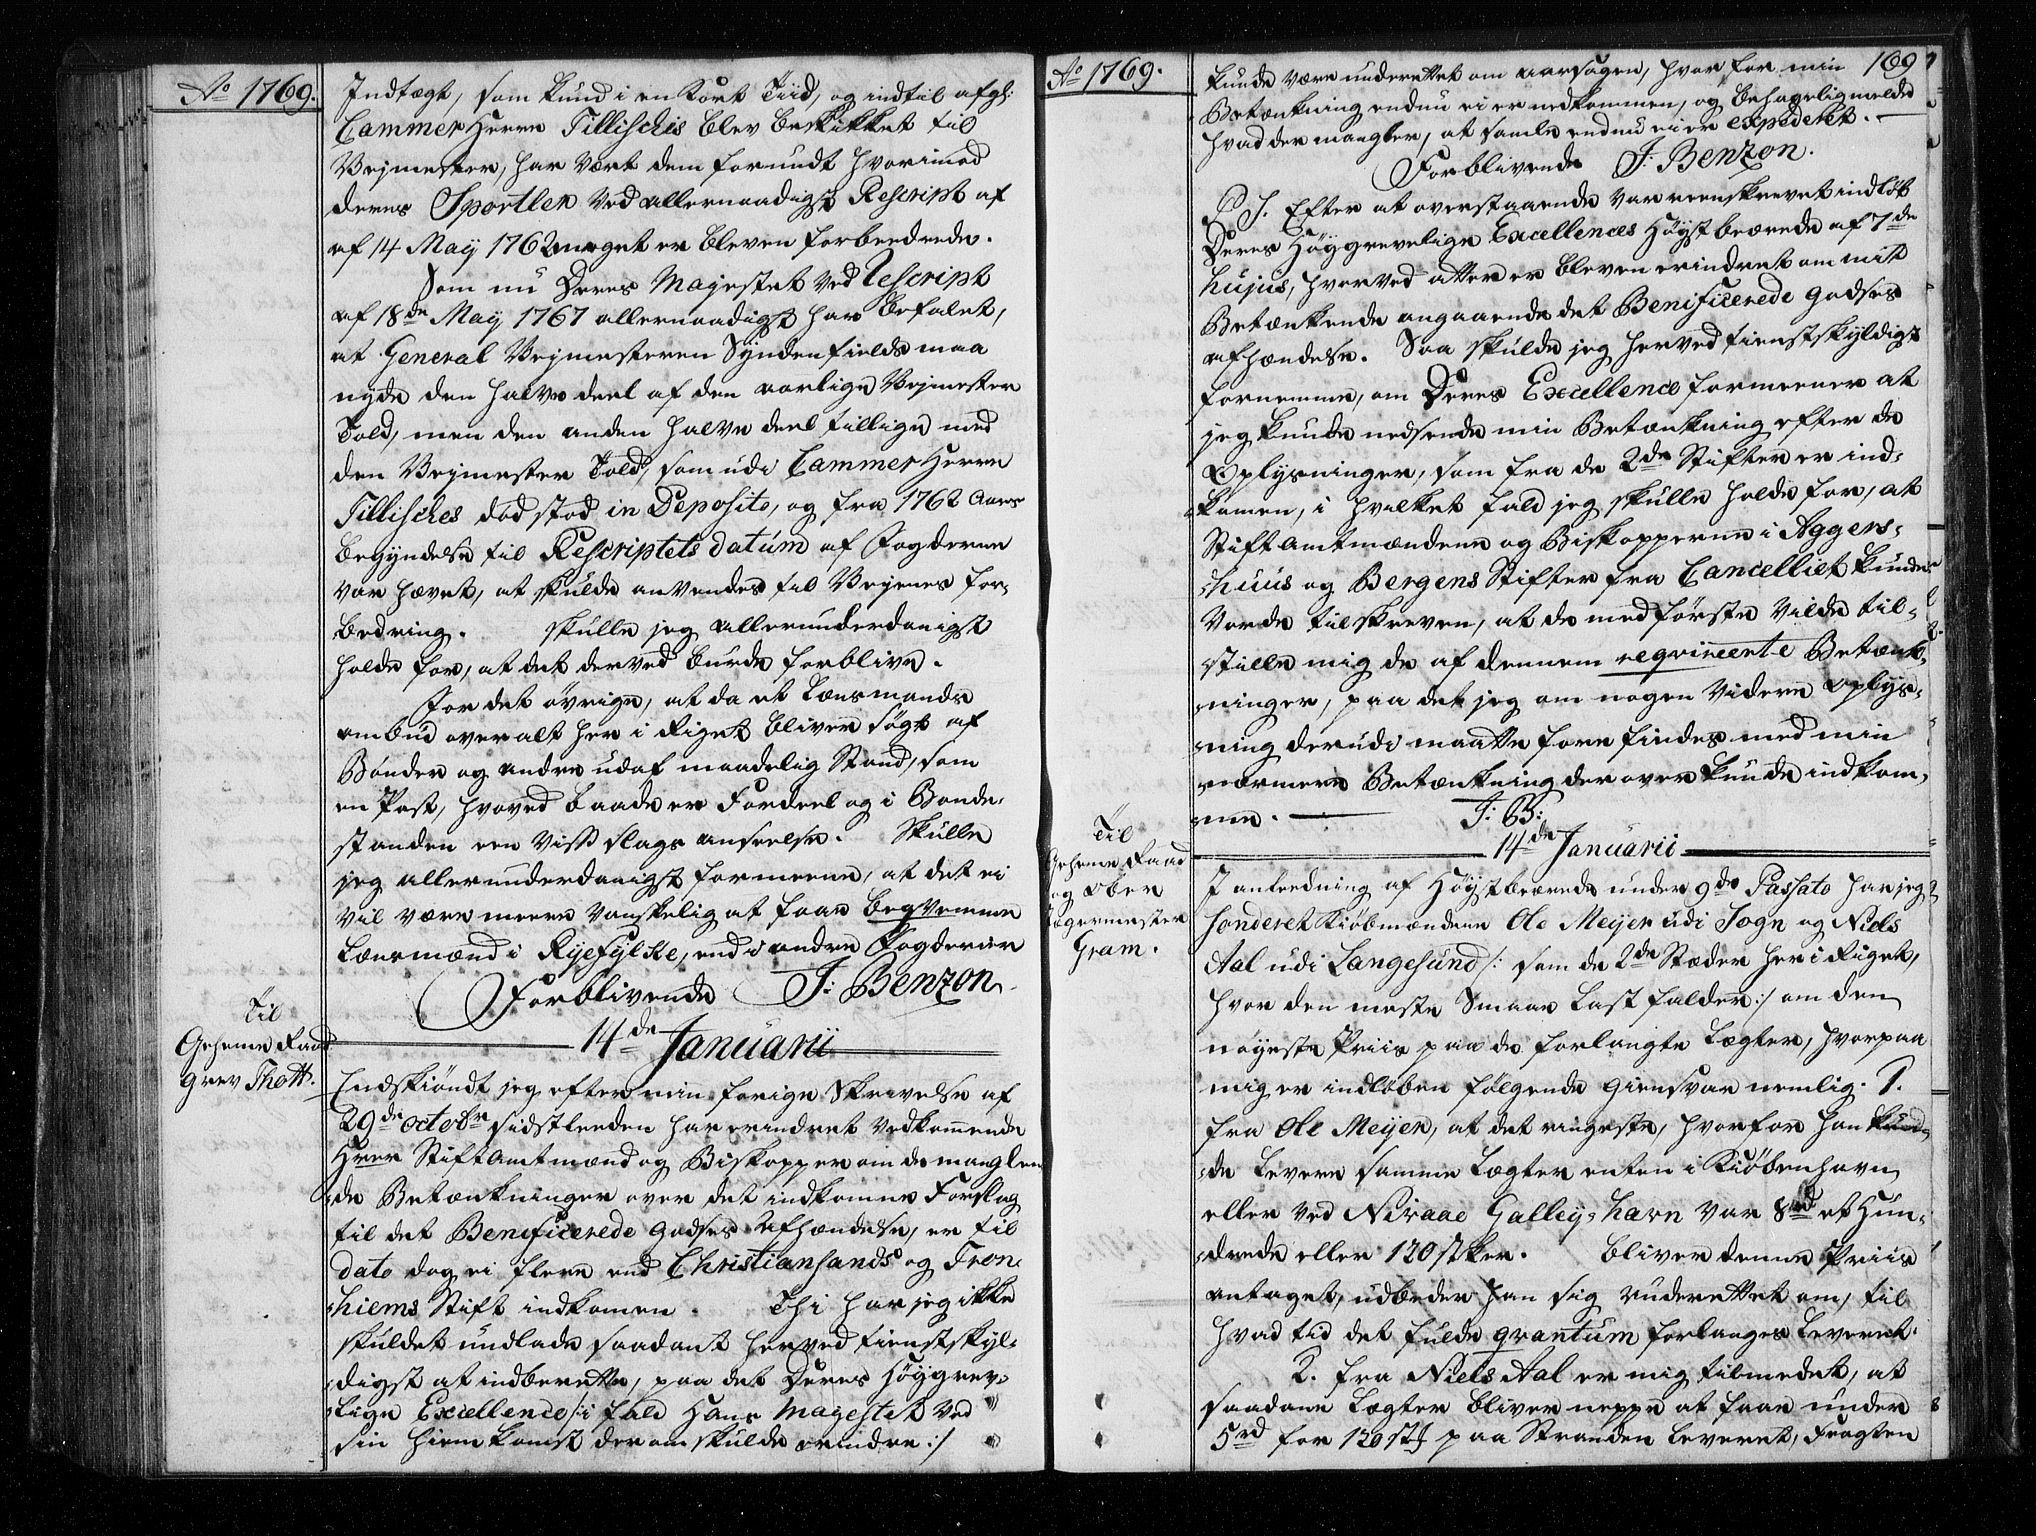 Ao 1769.
Indtægt, som kund i en kort Tiid, og indtil afgl:
Cammer Herre Tillisches blev beskikket til
Vejmester, har vært dem forundt hvorimod
deres Sportler ved allernaadigst Rescript af
af 14 May 1762 meget er bleven forbeedrede.
Som nu Deres Majestet ved Rescript
af 18de May 1767 allernaadigst har befalet,
at General Vejmesteren Syndenfields maa
nyde den halve deel af den aarlige Vejmester
Told, men den anden halve deel tillige med
den Vejmester Told, som udi Cammer Herre
Tillisches død stod in Deposito, og fra 1762 Aars
begyndelse til Rescriptets datum af Fogderne
var hævet, at skulde anvendes til Vejenes for-
bedring. skulle jeg allerunderdanigst
holde for, at det derved burde forblive.
For det øvrige, at da et Lænsmands
ombud overalt her i Riget bliver søgt af
Bønder og andre udaf maadelig Stand, som
en Post, hvoved baade er Fordeel og i Bonde-
standen een viss slags anseelse. Skulle
jeg allerunderdanigst formeene, at det ei
vil være meere vanskelig at faae beqvemme
Lænsmænd i Ryefylke, end i andre Fogderier
Forblivende J: Benzon.
14de Januarii
Til
Geheime Raad
Grev Thott.
Endskiøndt jeg efter min forige Skrivelse af
29de octobr sidstleeden har erindret vedkommende
Hrer Stiftamtmænd og Biskopper om de manglen-
de Betænkninger over det indkomne Forslag
til det Beneficerede Godses Afhændelse, er til
dato dog ei fleere end Christiansands og Tron-
hiems Stift indkomen. Thi har jeg ikke
skuldet undlade saadant herved tienstskyl-
digst at indberette, paa det Deres Høygrev-
lige Excellence /: i fald Hans Magestet ved
sin hiemkomst derom skulde erindre :/
Ao 1769.
169
kunde være underettet om aarsagen, hvorfor min
Betænkning endnu ei er nedkommen, og behagelig melde
hvad der mangler, at samle endnu ei er expederet.
Forblivende J: Benzon.
P S. Efter at overstaaende var reenskrevet indløb
Deres Høygrevelige Excellences Høystbeærede af 7de
hujus, hvorved atter er bleven erindret om mit
Betænkende angaaende det Benificerede Godses
afhændelse. Saa skulde jeg herved tienstskyldigst
fornemme, om Deres Excellence formeener at
jeg kunde nedsende min Betænkning efter de
Oplysninger, som fra de 2de Stifter er ind-
komen, i hvilket fald jeg skulle holde for, at
Stiftamtmændene og Biskopperne i Aggers-
huus og Bergens Stifter fra Cancelliet kunde
vorde tilskreven, at de med første vilde til-
stille mig de af dennem reqvireerte Betænk-
ninger, paa det jeg om nogen videre oplys-
ning derudi maatte forefindes med min
nærmere Betænkning derover kunde indkom-
me. J: B:
14de Januarii
Til
Geheime Raad
og Ober
Jægermester
Gram.
I anleedning af Høystbeærede under 9de Passato har jeg
sonderet Kiøbmændene Ole Meyer udi Sogn og Niels
Aal udi Langesund /: som de 2de Stæder her i Riget,
hvor den meste Smaae Last falder :/ om den
nøyeste Priis paa de forlangte Lægter, hvorpaa
mig er indløben følgende Giensvar nemlig. 1.
fra Ole Meyer, at det ringeste, hvorfor han kund-
de levere samme Lægter enten i Kiøbenhavn
eller ved Niraae Galley-havn var 8rd et Hun-
drede eller 120 stker. Bliver denne Priis
antaget, udbeder han sig underettet om, til
hvad tid det fulde qvantum forlanges leveret.
2. fra Niels Aal er mig tilmedet, at
saadane Lægter bliver neppe at faae under
5rd for 120 stk paa Stranden leveret, Fragten